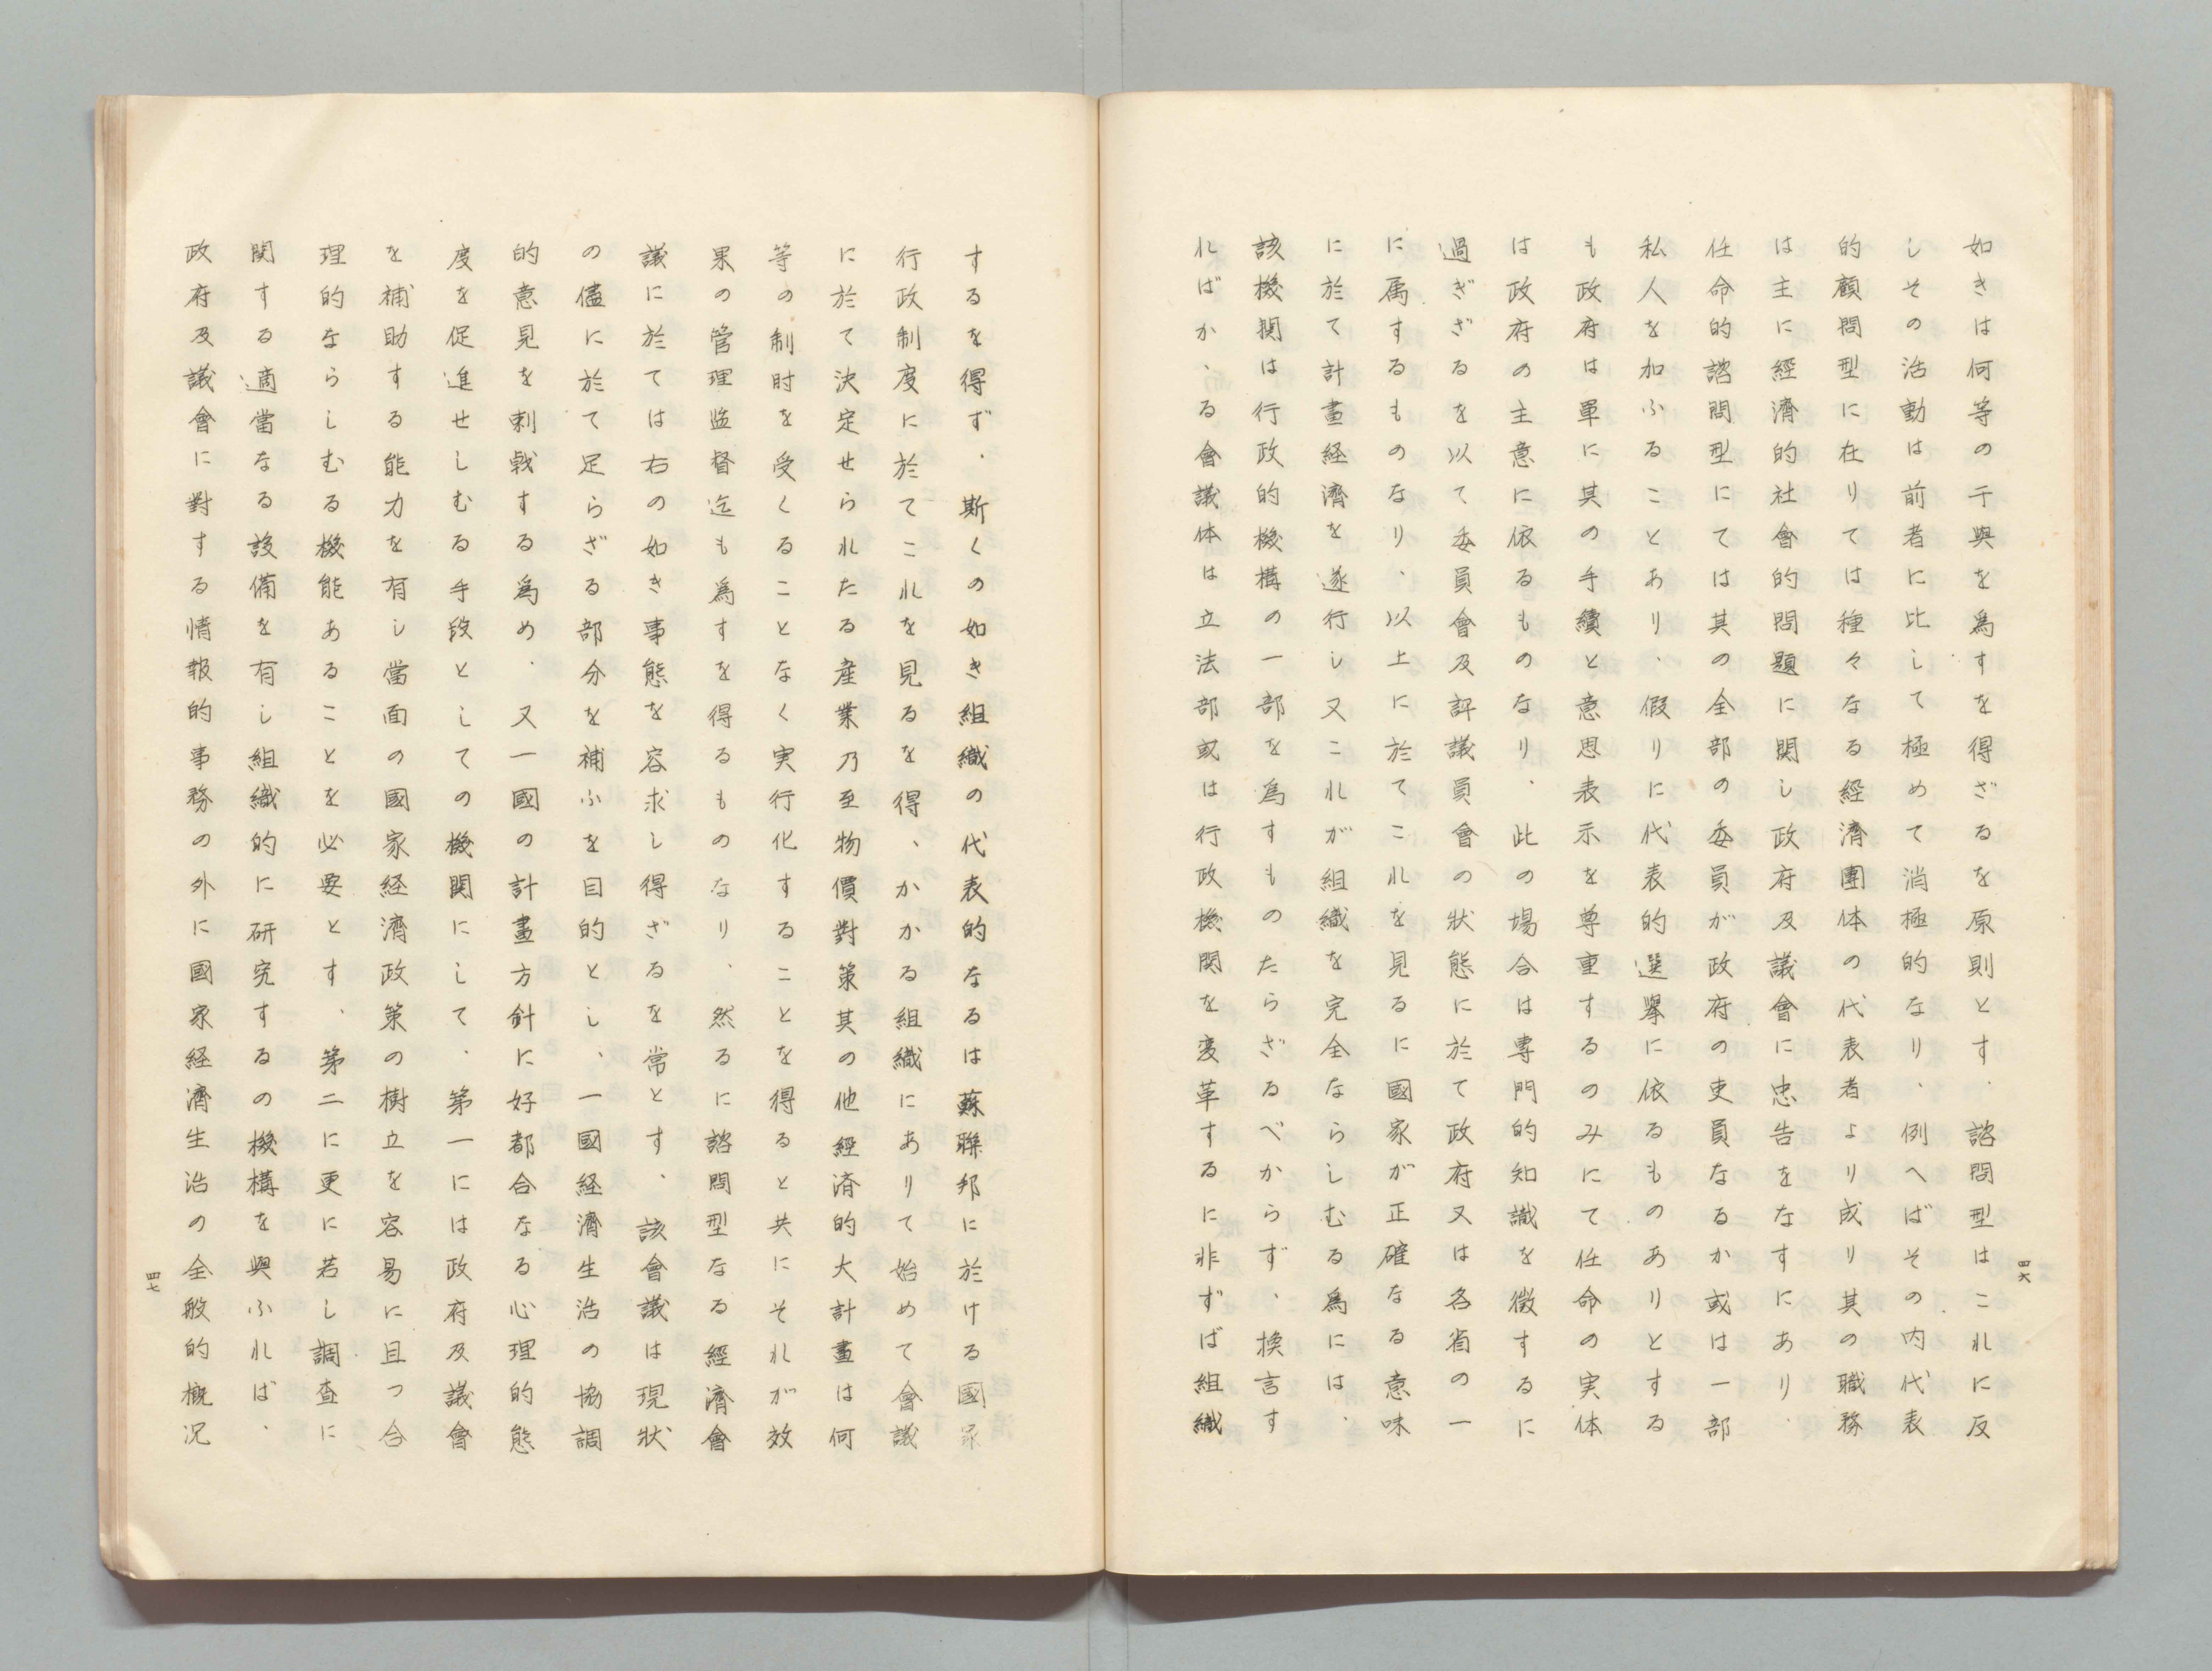 如きは何等の干與を爲すを得ざるを原則とす、諮問型はこれに反
しその活動は前者に比して極めて消極的なり、例へばその内代表
的顧問型に在りては種々なる経濟團体の代表者より成り其の職務
は主に經濟的社會的問題に関し政府及議會に忠告をなすにあり、
任命的諮問型にては其の全部の委員が政府の吏員なるか或は一部
私人を加ふることあり、假りに代表的選擧に依るものありとする
も政府は單に其の手續と意思表示を尊重するのみにて任命の実体
は政府の主意に依るものなり、此の場合は專門的知識を徴するに
過ぎざるを以て委員會及評議員會の狀態に於て政府又は各省の一
に属するものなり、以上に於てこれを見るに國家が正確なる意味
に於て計畫経濟を遂行し又これが組織を完全ならしむる爲には、
該機関は行政的機構の一部を爲すものたらざるべからず、換言す
ればか、る會議体は立法部或は行政機関を変革するに非ずば組織
四六
するを得ず、斯くの如き組織の代表的なるは蘇聯邦に於ける國家
行政制度に於てこれを見るを得、かかる組織にありて始めて會議
に於て決定せられたる産業乃至物價對策其の他經済的大計畫は何
等の制肘を受くることなく実行化することを得ると共にそれが效
果の管理監督迄も爲すを得るものなり、然るに諮問型なる經濟會
議に於ては右の如き事態を容求し得ざるを常とす、該會議は現狀
の儘に於て足らざる部分を補ふを目的とし、一國経濟生活の協調
的意見を刺戟する爲め、又一國の計畫方針に好都合なる心理的態
度を促進せしむる手段としての機関にして、第一には政府及議會
を補助する能力を有し當面の國家経濟政策の樹立を容易に且つ合
理的ならしむる機能あることを必要とす、第二に更に若し調査に
関する適當なる設備を有し組織的に研究するの機構を興ふれば、
政府及議會に對する情報的事務の外に國家経濟生活の全般的概況
四七